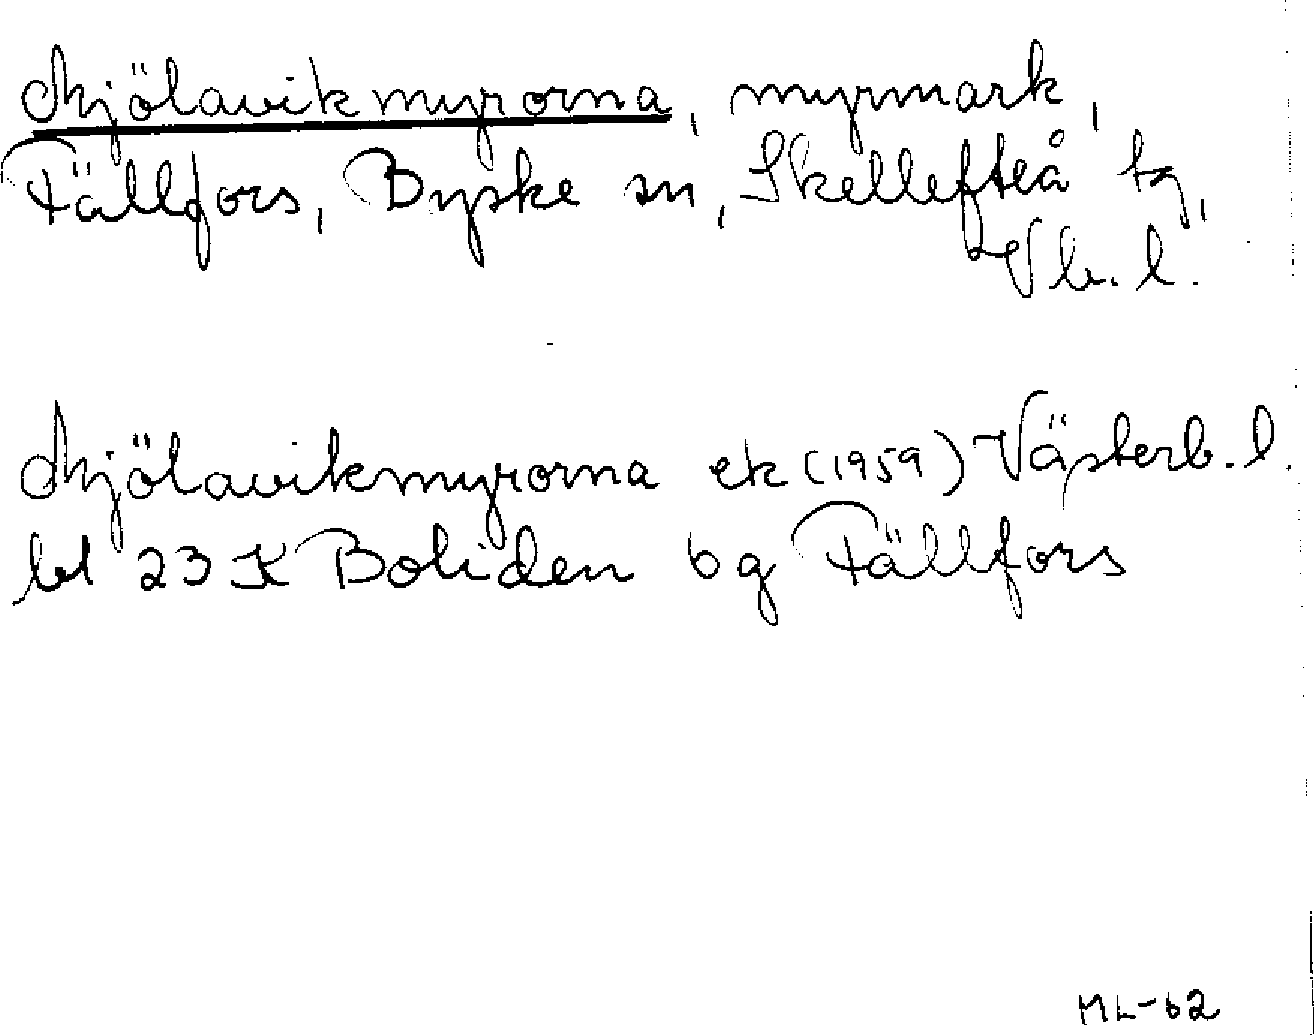 Mjölavikmyrorna, myrmark,
Fällfors, Byske sn, Skellefteå tg,
Vb. l.
Mjölavikmyrorna ek (1959) Västerb. l.
bl 23 K Boliden bg Fällfors
ML-62